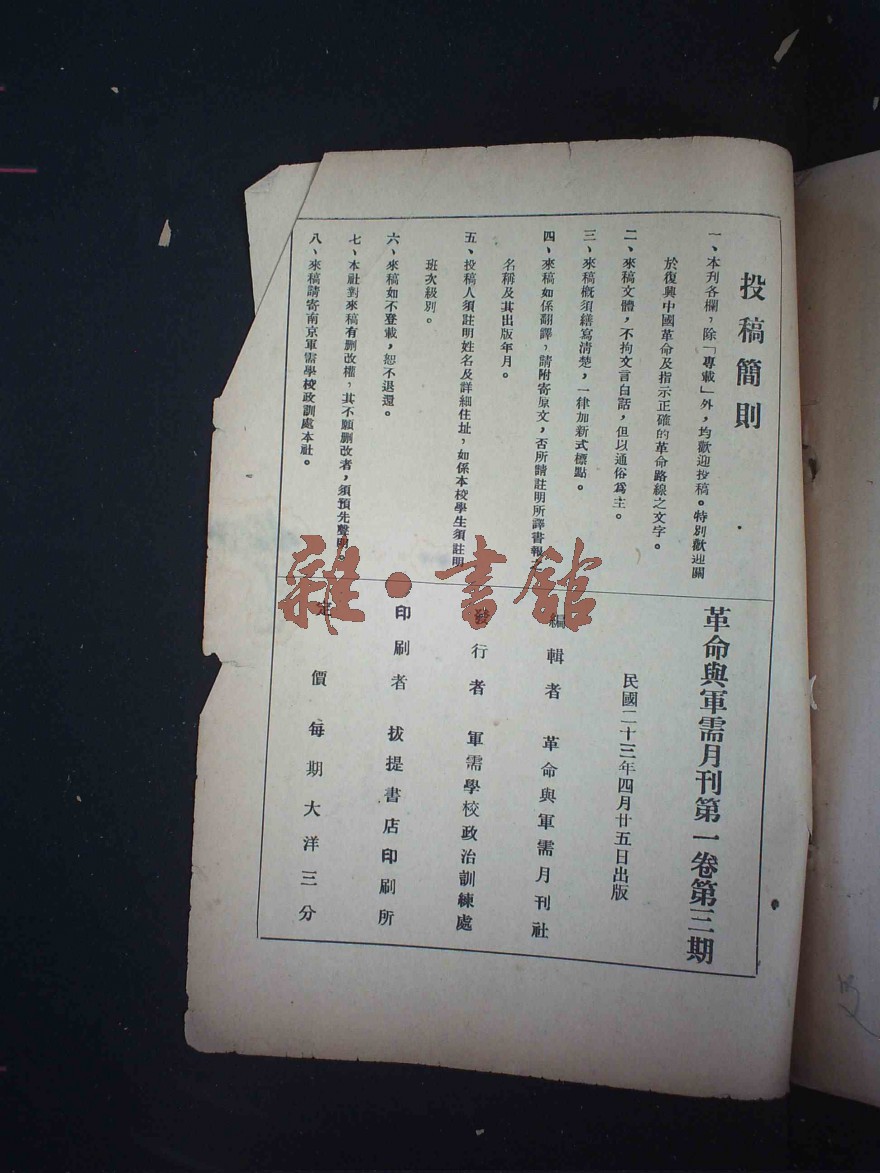 投稿簡則
一、本刊各欄，除「專載」外，均歡迎投稿。特別歡迎關
於復興中國革命及指示正確的革命路線之文字。
二、來稿文體，不拘文言白話，但以通俗爲主。
三、來稿概須繕寫清楚，一律加新式標點。
四、來稿如係翻譯，請附寄原文，否所請註明所譯書報之
名稱及其出版年月。
五、投稿人須註明姓名及詳細住址，如係本校學生須註明
班次級別。
六、來稿如不登載，恕不退還。
七、本社對來稿有删改權，其不願删改者，須預先聲明。
八、來稿請寄南京軍需學校政訓處本社。
革命與軍需月刊第一卷第三期
民國二十三年四月廿五日出版
編輯者 革命與軍需月刊社
發行者 軍需學校政治訓練處
印刷者 拔提書店印刷所
定價每期大洋三分
雜·書館